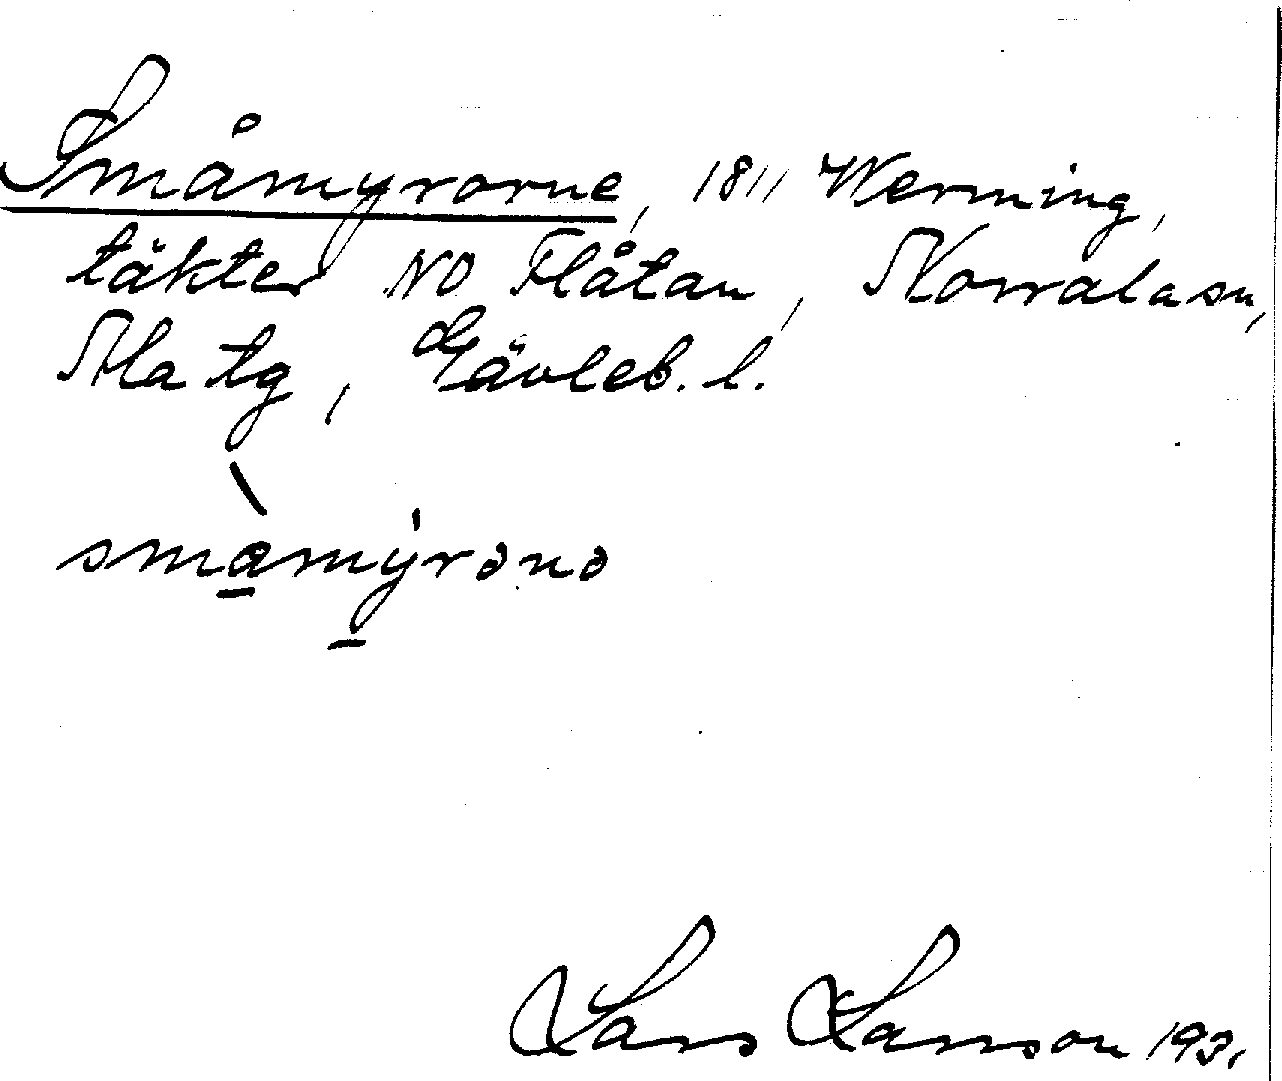 Småmyrorne, 1811 Werning,
täkter NO Flåtan, Norralasn,
Ala tg, Gävleb. l.
småmy̍rənə
Lars Larsson 193.